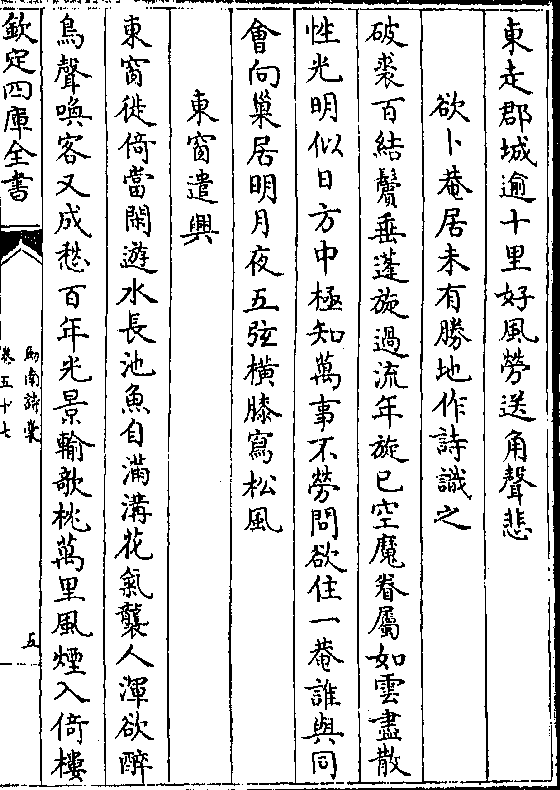 東走郡城逾十里好風勞送角聲悲
欲卜菴居未有勝地作詩識之
破裘百結鬢垂蓬旋過流年旋已空魔眷屬如雲盡散
性光明似日方中極知萬事不勞問欲住一菴誰與同
會向巢居明月夜五弦橫膝寫松風
東窗遣興
東窗徙倚當閑遊水長池魚自滿溝花氣襲人渾欲醉
鳥聲喚客又成愁百年光景輸欹枕萬里風煙入倚樓
欽定四庫全書
劒南詩藁
卷五十七
五